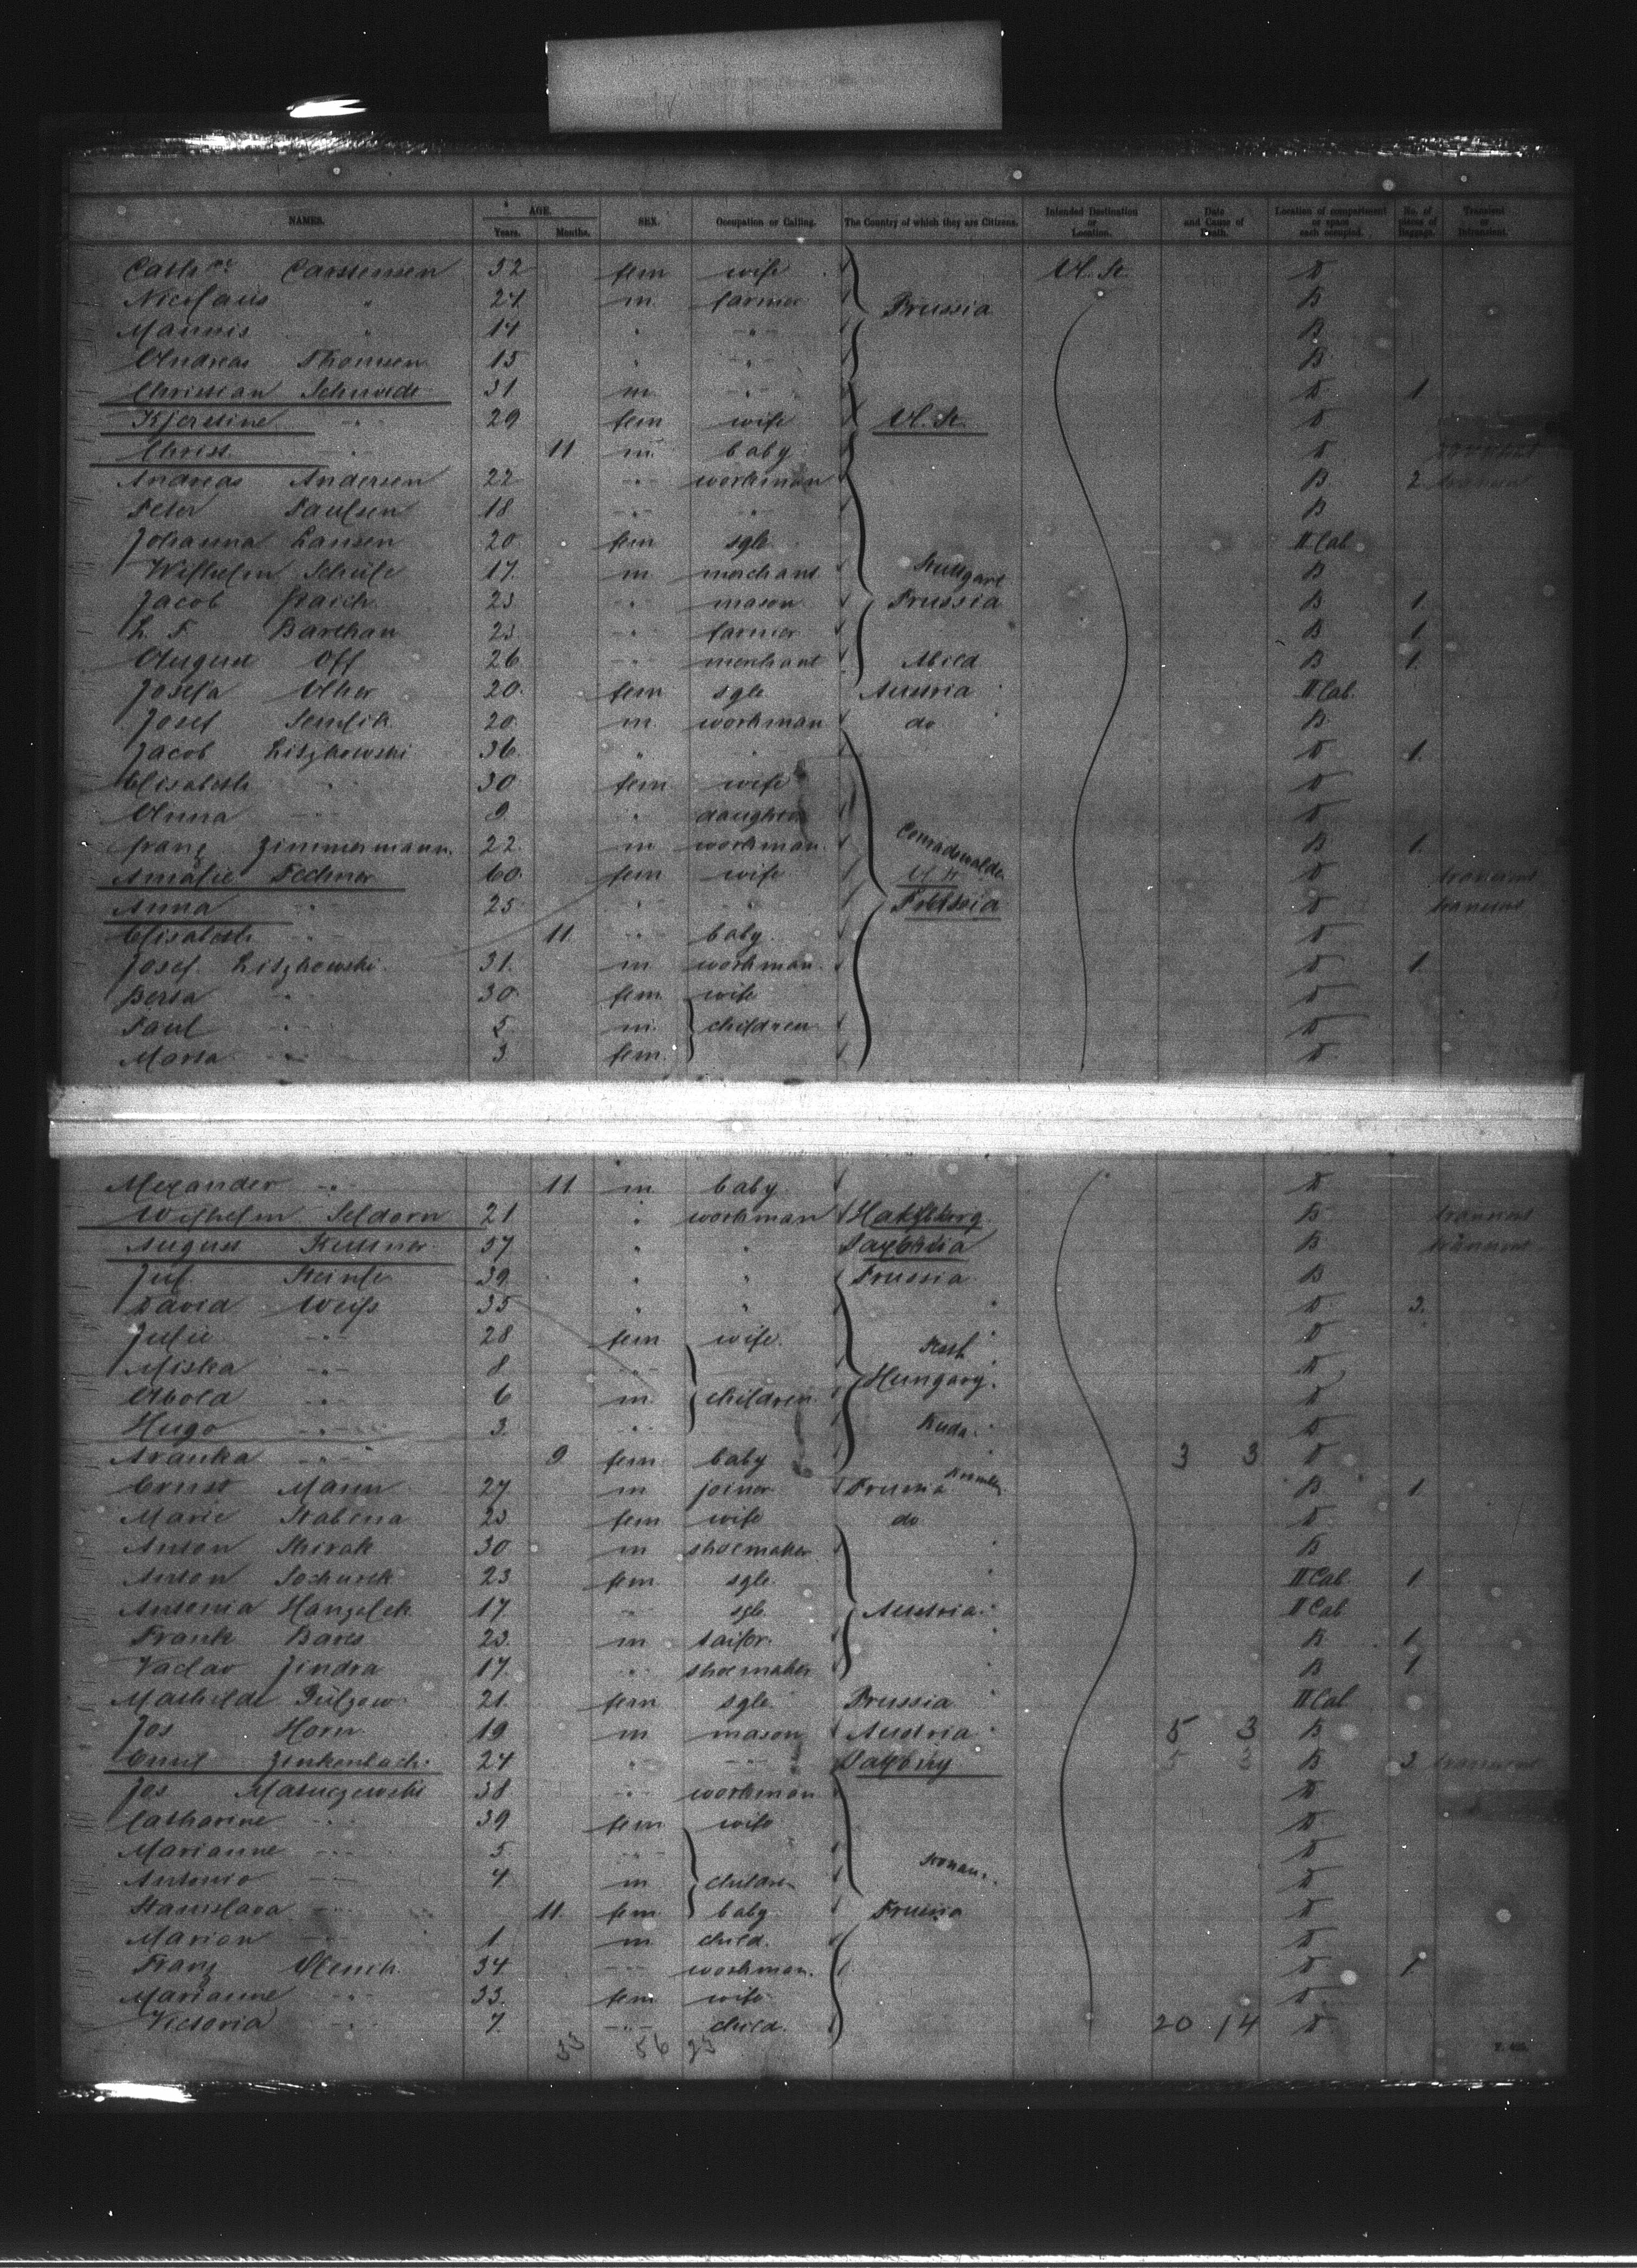 NAMES. AGE. Years. Months. SEX. Occupation or Calling. The Country of which they are Citizens. Intended Destination or Location. Date and Cause of Death. Location of compartment or space each occupied. No. of pieces of Baggage. Transient or Intransient.
Cath Carstensen 32 fem wife U. St. D
Nicolaus " 24 m farmer Prussia B
" 14 " " B
Andreas Thomsen 15 " " B
Christian Schmidt 31 m " D 1
Kjerstine " 29 fem wife U. St. D
Christ " 11 m baby D
Andreas Andersen 22 " workman B 2 transient
Peter Paulsen 18 " " B
Johanna Hansen 20 fem sgle II Cab
Wilhelm Schüle 17 m merchant Stuttgart B
Jacob 23 " mason Prussia B 1
23 " farmer B 1
August Off 26 " merchant B 1
Josefa 20 fem sgle Austria II Cab.
Josef 20 m workman do B
Jacob Liszkowski 36 " " D 1
Elisabeth " 30 fem wife D
Anna " 9 " daughter D
Franz Zimmermann 22 m workman Conradswalde B 1
Amalie Fechner 60 fem wife U. St. D transient
Anna " 25 " " Prussia D transient
Elisabeth " 11 " baby D
Josef Liszkowski 31 m workman D 1
Berta " 30 fem wife D
Paul " 5 m children D
Marta " 3 fem D
Alexander " 11 m baby D
Wilhelm Seldorn 21 " workman B transient
August 57 " " B transient
Jul. Steinle 39 " " Prussia B
David Weiss 35 " " D 3
Julie " 28 fem wife D
Miska " 8 " D
" 6 m children Hungary D
Hugo " 3 " D
Aranka " 9 fem baby 3 3 D
Ernst Mann 27 m joiner Prussia B 1
Marie 23 fem wife do D
Anton 30 m shoemaker B
Anton 23 fem sgle II Cab 1
Antonia 17 " sgle Austria II Cab
Frank Bares 23 m tailor B 1
Vaclav Jindra 17 " shoemaker B 1
Mathilde Gülzow 21 fem sgle Prussia II Cab
Jos Horn 19 m mason Austria 5 3 B
Emil Zinkenbach 24 " " B 3 transient
Jos 38 " workman D
Catharine " 39 fem wife D
Marianne " 5 " D
Antonio " 4 m children D
Stanislava " 11 fem baby Prussia D
Marian " 1 m child D
Franz 34 " workman D 1
Marianne " 33 fem wife D
Victoria " 7 " child 20 14 D
33 56 23